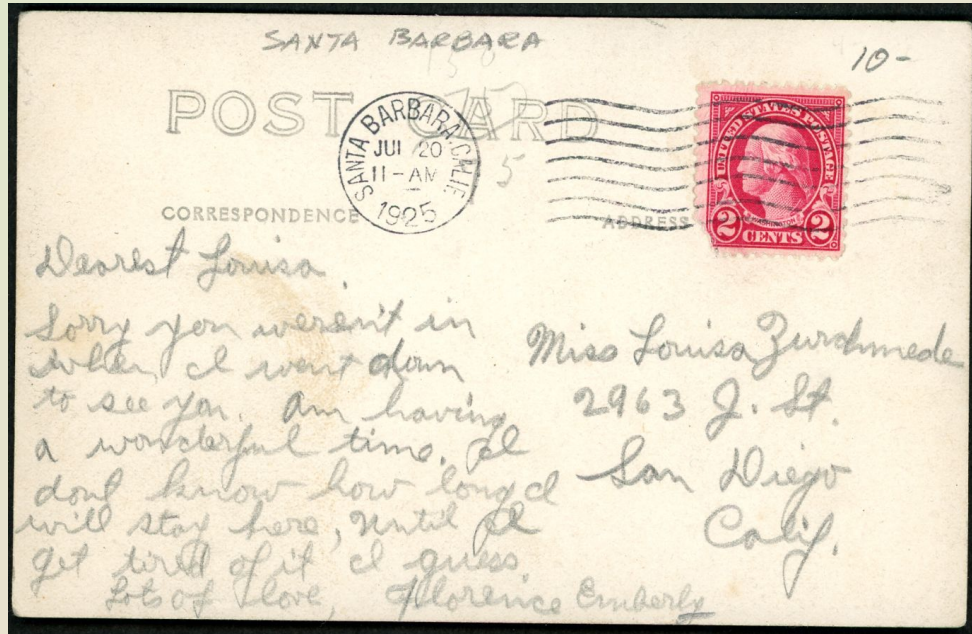 SANTA BARBARA
10-
POST CARD
SANTA BARBARA, CALIF.
JUL 20
11-AM
1925
5
UNITED STATES POSTAGE
WASHINGTON
2 CENTS 2
CORRESPONDENCE
ADDRESS
Dearest Louisa
Sorry you weren't in
when I went down
to see you. Am having
a wonderful time. I
dont know how long I
will stay here, until I
get tired of it I guess.
Lots of love, Florence Emberly
Miss Louisa
2963 J. St.
San Diego
Calif.